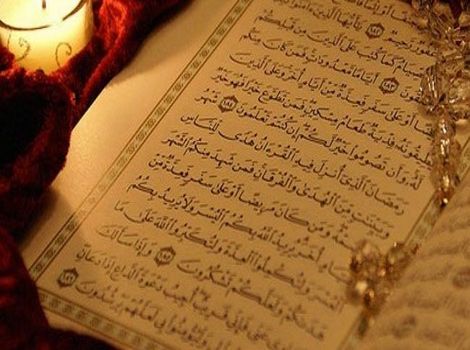 غَفُورٌ رَّحِيمٌ ١٨٢ يَٰٓأَيُّهَا ٱلَّذِينَ ءَامَنُوا۟
ٱلصِّيَامُ كَمَا كُتِبَ عَلَى ٱلَّذِينَ مِن قَبْلِكُمْ
١٨٣ أَيَّامًا مَّعْدُودَٰتٍ فَمَن كَانَ مِنكُم
أَوْ عَلَىٰ سَفَرٍ فَعِدَّةٌ مِّنْ أَيَّامٍ أُخَرَ وَعَلَى ٱلَّذِينَ
يُطِيقُونَهُۥ فِدْيَةٌ طَعَامُ مِسْكِينٍ فَمَن تَطَوَّعَ خَيْرًا فَهُوَ خَيْرٌ
لَّهُۥ وَأَن تَصُومُوا۟ خَيْرٌ لَّكُمْ إِن كُنتُمْ تَعْلَمُونَ ١٨٤ شَهْرُ
رَمَضَانَ ٱلَّذِىٓ أُنزِلَ فِيهِ ٱلْقُرْءَانُ هُدًى لِّلنَّاسِ
وَبَيِّنَٰتٍ مِّنَ ٱلْهُدَىٰ وَٱلْفُرْقَانِ فَمَن شَهِدَ مِنكُمُ ٱلشَّهْرَ
وَمَن كَانَ مَرِيضًا أَوْ عَلَىٰ سَفَرٍ فَعِدَّةٌ مِّنْ
أُخَرَ يُرِيدُ ٱللَّهُ بِكُمُ ٱلْيُسْرَ وَلَا يُرِيدُ بِكُمُ
ٱلْعُسْرَ وَلِتُكْمِلُوا۟ ٱلْعِدَّةَ وَلِتُكَبِّرُوا۟ ٱللَّهَ عَلَىٰ مَا
هَدَىٰكُمْ وَلَعَلَّكُمْ تَشْكُرُونَ ١٨٥ وَإِذَا سَأَلَكَ
عَنِّى فَإِنِّى قَرِيبٌ أُجِيبُ دَعْوَةَ ٱلدَّاعِ إِذَا دَعَانِ
وَلْيُؤْمِنُوا۟ بِى لَعَلَّهُمْ يَرْشُدُونَ